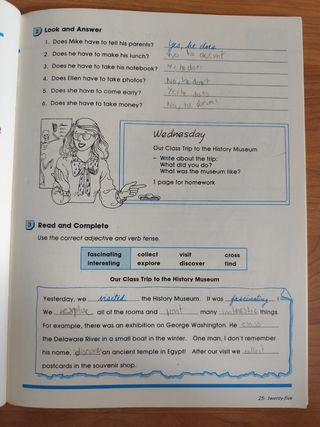 2 Look and Answer
1. Does Mike have to tell his parents? Yes, he does
2. Does he have to make his lunch? No he doesnt
3. Does he have to take his notebook? Yes he does
4. Does Ellen have to take photos? No, he doesnt
5. Does she have to come early? Yes he does
6. Does she have to take money? No, he doesnt
Wednesday
Our Class Trip to the History Museum
– Write about the trip:
What did you do?
What was the museum like?
1 page for homework
3 Read and Complete
Use the correct adjective and verb tense.
fascinating collect visit cross
interesting explore discover find
Our Class Trip to the History Museum
Yesterday, we visited the History Museum. It was fascinating !
We explore all of the rooms and many things.
For example, there was an exhibition on George Washington. He cross
the Delaware River in a small boat in the winter. One man, I don't remember
his name, discover an ancient temple in Egypt! After our visit we collect
postcards in the souvenir shop.
25 twenty-five